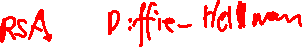 RSA Diffie-Hellman